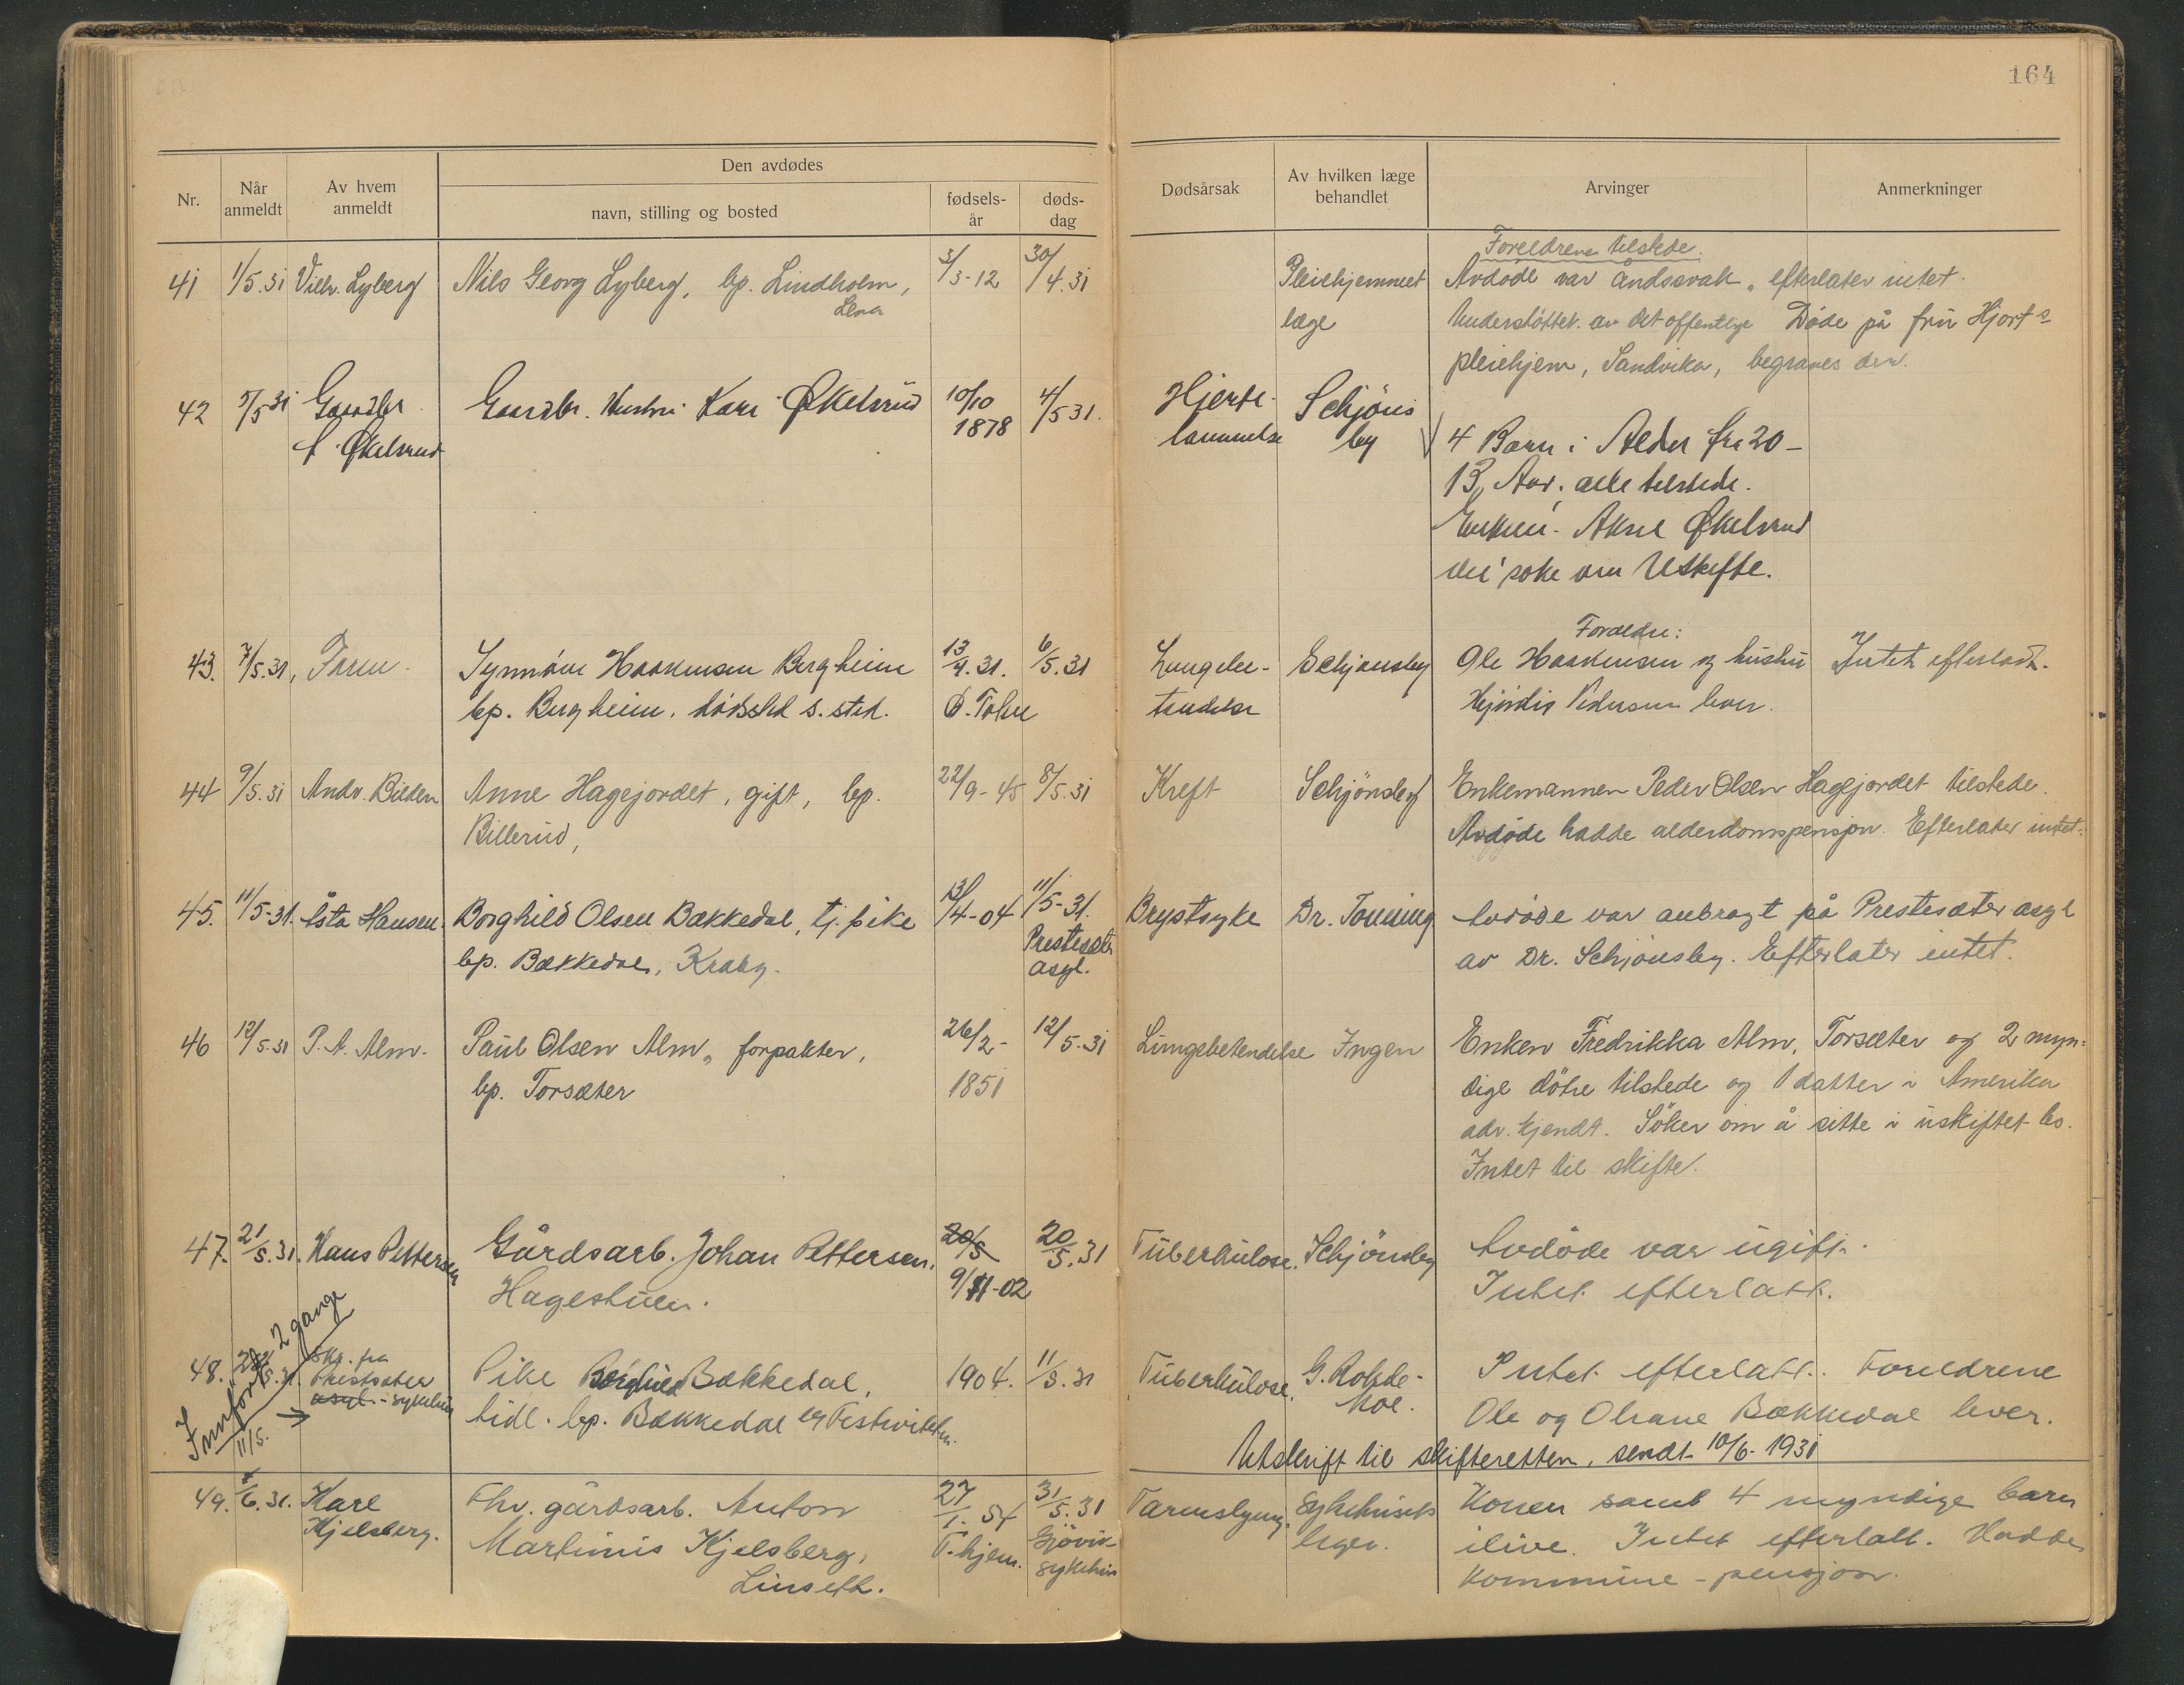 164
Den avdødes
Nr.
Når anmeldt
Av hvem anmeldt
navn, stilling og bosted
fødsels-år
døds-dag
Dødsårsak
Av hvilken læge behandlet
Arvinger
Anmerkninger
41 1/5.31 Vilh. Lyberg Nils Georg Lyberg, bp. Lindholm, 3/3-12 30/4.31
Lena
Foreldrene tilstede.
Pleiehjemmet Avdøde var åndssvak, efterlater intet.
læge Understøttet av det offentlige Døde på fru Hjorts
pleiehjem, Sandvika, begraves der.
42 5/5 31 Gaardbr. Gaardbr. Hustru Kari Økelsrud 10/10 4/5 31.
Økelsrud 1878
Hjerte- Schjøns
lammelse by 4 Barn i Alder fra 20-
13 Aar. alle tilstede.
Aksel Økelsrud
vil søke om Uskifte.
43. 7/5.31, Faren Synnøve Haakensen Bergheim 13/4.31. 6/5.31
bp. Bergheim, dødssted s. sted.
Forældre:
Lungebe- Schjønsby Ole Haakensen og hustru Intet efterladt.
tendelse Hjørdis Pedersen lever.
44 9/5.31 Andr. Bilden Anne Hagejordet, gift, bp. 22/9-45 8/5.31
Billerud,
Kreft Schjønsby Enkemannen Peder Olsen Hagejordet tilstede.
Avdøde hadde alderdomspensjon. Efterlater intet.
45. 11/5-31. Åsta Hansen. Borghild Olsen Bækkedal, tj. pike 13/4-04 11/5-31.
bp. Bækkedal, Kraby. Prestesæter
asyl.
Brystsyke Dr. Tonning Avdøde var anbragt på Prestesæter asyl
av Dr. Schjønsby. Efterlater intet.
46 12/5.31 P. A. Alm. Paul Olsen Alm, forpakter, 26/2- 12/5.31
bp. Torsæter 1851
Lungebetendelse Ingen Enken Fredrikka Alm, Torsæter og 2 myn-
dige døtre tilstede og 1 datter i Amerika
adr. kjendt. Søker om å sitte i uskiftet bo.
Intet til skifte.
47. 21/5.31. Hans Pettersen Gårdsarb. Johan Pettersen. 20/5 20/5.31
Hagestuen. 9/11-02
Tuberkulose. Schjønsby Avdøde var ugift.
Intet efterlatt.
Innført 2 gange
11/5.
48. Skr. fra Pike Borghild Bækkedal, 1904. 11/5.31
Prestsæter tidl. bp. Bækkedal
asyl.-sykehus
Tuberkulose. G. Rohde- Intet efterlatt. Foreldrene
Moe. Ole og Oliane Bækkedal lever.
Utskrift til skifteretten, sendt 10/6-1931
49. 1/6.31. Karl Fhv. gårdsarb. Anton 27/1.54 31/5.31
Kjelsberg. Martinius Kjelsberg, F.hjem. Gjøvik
Linseth. sykehus
Tarmslyng. Sykehusets Konen samt 4 myndige barn
leger. ilive. Intet efterlatt. Hadde
kommune-pensjon.